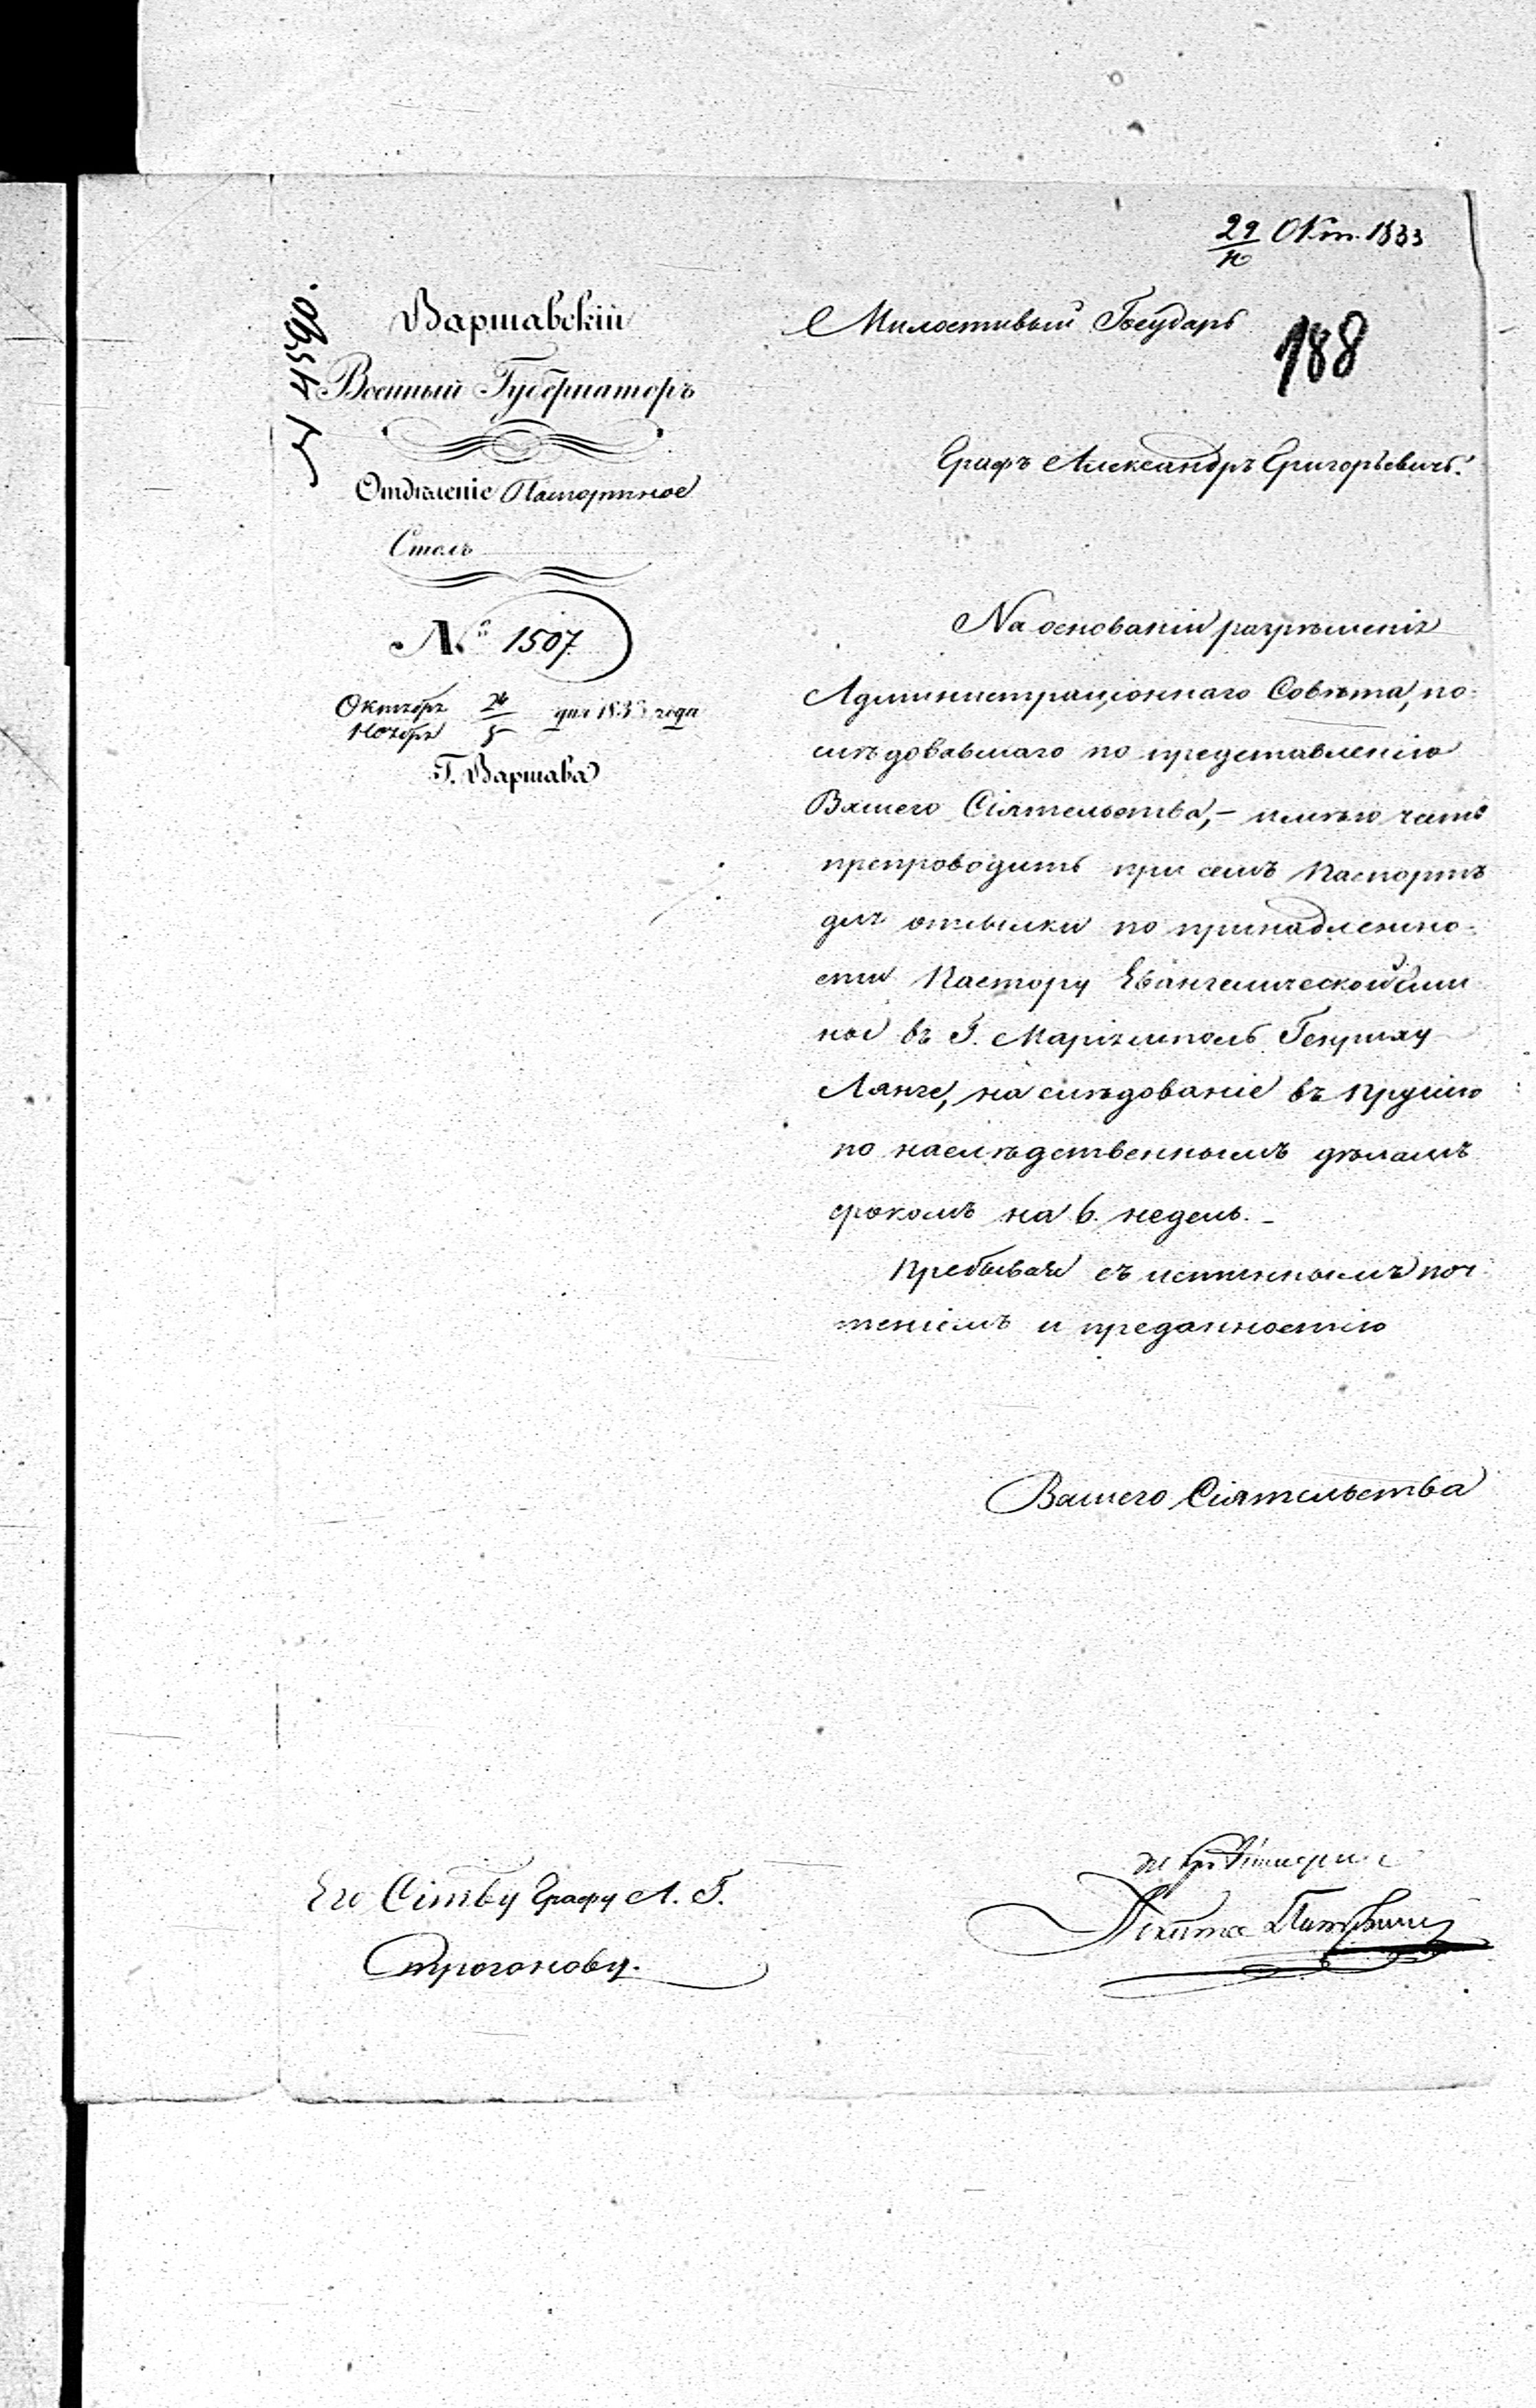 29 Окт. 1833
188
Варшавскій
Военный Губернаторъ
Отдѣленіе Паспортное
Столъ
№ 1507
Октября 24 дня 1833 года
Ноября 5
Г. Варшава
Милостивый Государь
Графъ Александръ Григорьевичъ!
На основаніи разрѣшенія
Административнаго Совѣта, по-
слѣдовавшаго по представленію
Вашего Сіятельства, – имѣю честь
препроводить при семъ Паспортъ
для отсылки по принадлежно-
сти Пастору Евангелической
въ Г. Маріямполь Генриху
Ланге, на слѣдованіе въ Пруссію
по наслѣдственнымъ дѣламъ
срокомъ на 6. недѣль. –
Пребывая съ истиннымъ поч-
теніемъ и преданностію
Вашего Сіятельства
Его Сіятву Графу А. Г.
Строганову.
Никита Панкратьевъ